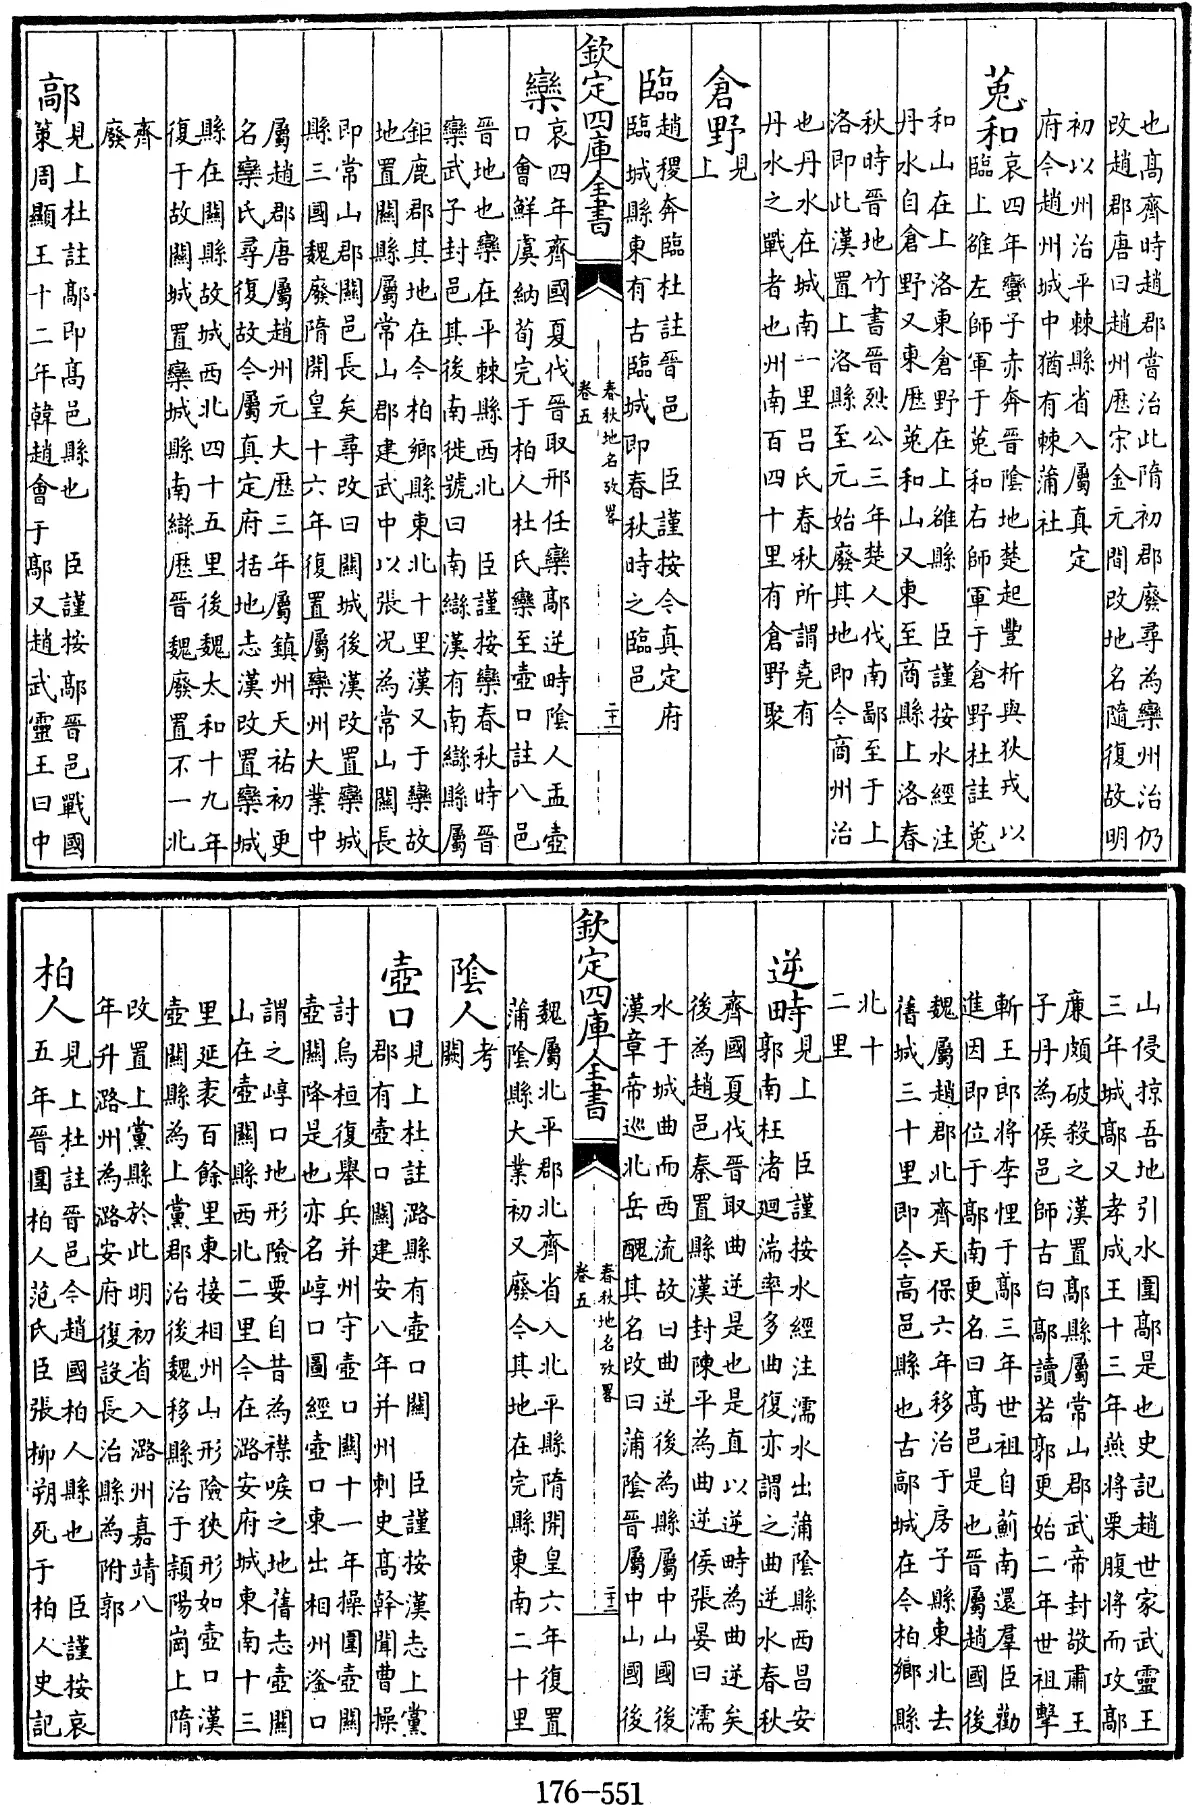 也髙齊時趙郡嘗治此隋初郡廢尋為欒州治仍
改趙郡唐曰趙州歷宋金元間改地名隨復故明
初以州治平棘縣省入屬真定
府今趙州城中猶有棘蒲社
菟和
哀四年蠻子赤奔晉隂地楚起豐析與狄戎以
臨上雒左師軍于菟和右師軍于倉野杜註菟
和山在上洛東倉野在上雒縣　臣謹按水經注
丹水自倉野又東歷菟和山又東至商縣上洛春
秋時晉地竹書晉烈公三年楚人伐南鄙至于上
洛即此漢置上洛縣至元始廢其地即今商州治
也丹水在城南一里吕氏春秋所謂堯有
丹水之戰者也州南百四十里有倉野聚
倉野
見
上
臨
趙稷奔臨杜註晉邑　臣謹按今真定府
臨城縣東有古臨城即春秋時之臨邑
欽定四庫全書
春秋地名攷畧
卷五
二十一
欒
哀四年齊國夏伐晉取邢任欒鄗逆畤隂人盂壺
口會鮮虞納荀完于柏人杜氏欒至壺口註八邑
晉地也欒在平棘縣西北　臣謹按欒春秋時晉
欒武子封邑其後南徙號曰南䜌漢有南䜌縣屬
鉅鹿郡其地在今柏鄉縣東北十里漢又于欒故
地置關縣屬常山郡建武中以張况為常山關長
即常山郡關邑長矣尋改曰關城後漢改置欒城
縣三國魏廢隋開皇十六年復置屬欒州大業中
屬趙郡唐屬趙州元大歷三年屬鎮州天祐初更
名欒氏尋復故今屬真定府括地志漢改置欒城
縣在關縣故城西北四十五里後魏太和十九年
復于故關城置欒城縣南䜌歷晉魏廢置不一北
齊
廢
鄗
見上杜註鄗即髙邑縣也　臣謹按鄗晉邑戰國
策周顯王十二年韓趙會于鄗又趙武靈王曰中
山侵掠吾地引水圍鄗是也史記趙世家武靈王
三年城鄗又孝成王十三年燕將栗腹將而攻鄗
廉頗破殺之漢置鄗縣屬常山郡武帝封敬肅王
子丹為侯邑師古曰鄗讀若郭更始二年世祖擊
斬王郎將李惲于鄗三年世祖自薊南還羣臣勸
進因即位于鄗南更名曰髙邑是也晉屬趙國後
魏屬趙郡北齊天保六年移治于房子縣東北去
舊城三十里即今高邑縣也古鄗城在今柏鄉縣
北十
二里
逆畤
見上　臣謹按水經注濡水出蒲隂縣西昌安
郭南枉渚迴湍率多曲復亦謂之曲逆水春秋
齊國夏伐晉取曲逆是也是直以逆畤為曲逆矣
後為趙邑秦置縣漢封陳平為曲逆侯張晏曰濡
水于城曲而西流故曰曲逆後為縣屬中山國後
漢章帝巡北岳醜其名改曰蒲隂晉屬中山國後
欽定四庫全書
春秋地名攷畧
卷五
二十二
魏屬北平郡北齊省入北平縣隋開皇六年復置
蒲隂縣大業初又廢今其地在完縣東南二十里
隂人
考
闕
壺口
見上杜註潞縣有壺口關　臣謹按漢志上黨
郡有壺口關建安八年并州刺史髙幹聞曹操
討烏桓復舉兵并州守壺口關十一年操圍壺關
壺關降是也亦名崞口圖經壺口東出相州滏口
謂之崞口地形險要自昔為襟喉之地舊志壺關
山在壺關縣西北二里今在潞安府城東南十三
里延袤百餘里東接相州山形險狹形如壺口漢
壺關縣為上黨郡治後魏移縣治于頴陽崗上隋
改置上黨縣於此明初省入潞州嘉靖八
年升潞州為潞安府復設長治縣為附郭
柏人
見上杜註晉邑今趙國柏人縣也　臣謹按哀
五年晉圍柏人范氏臣張柳朔死于柏人史記
176-551